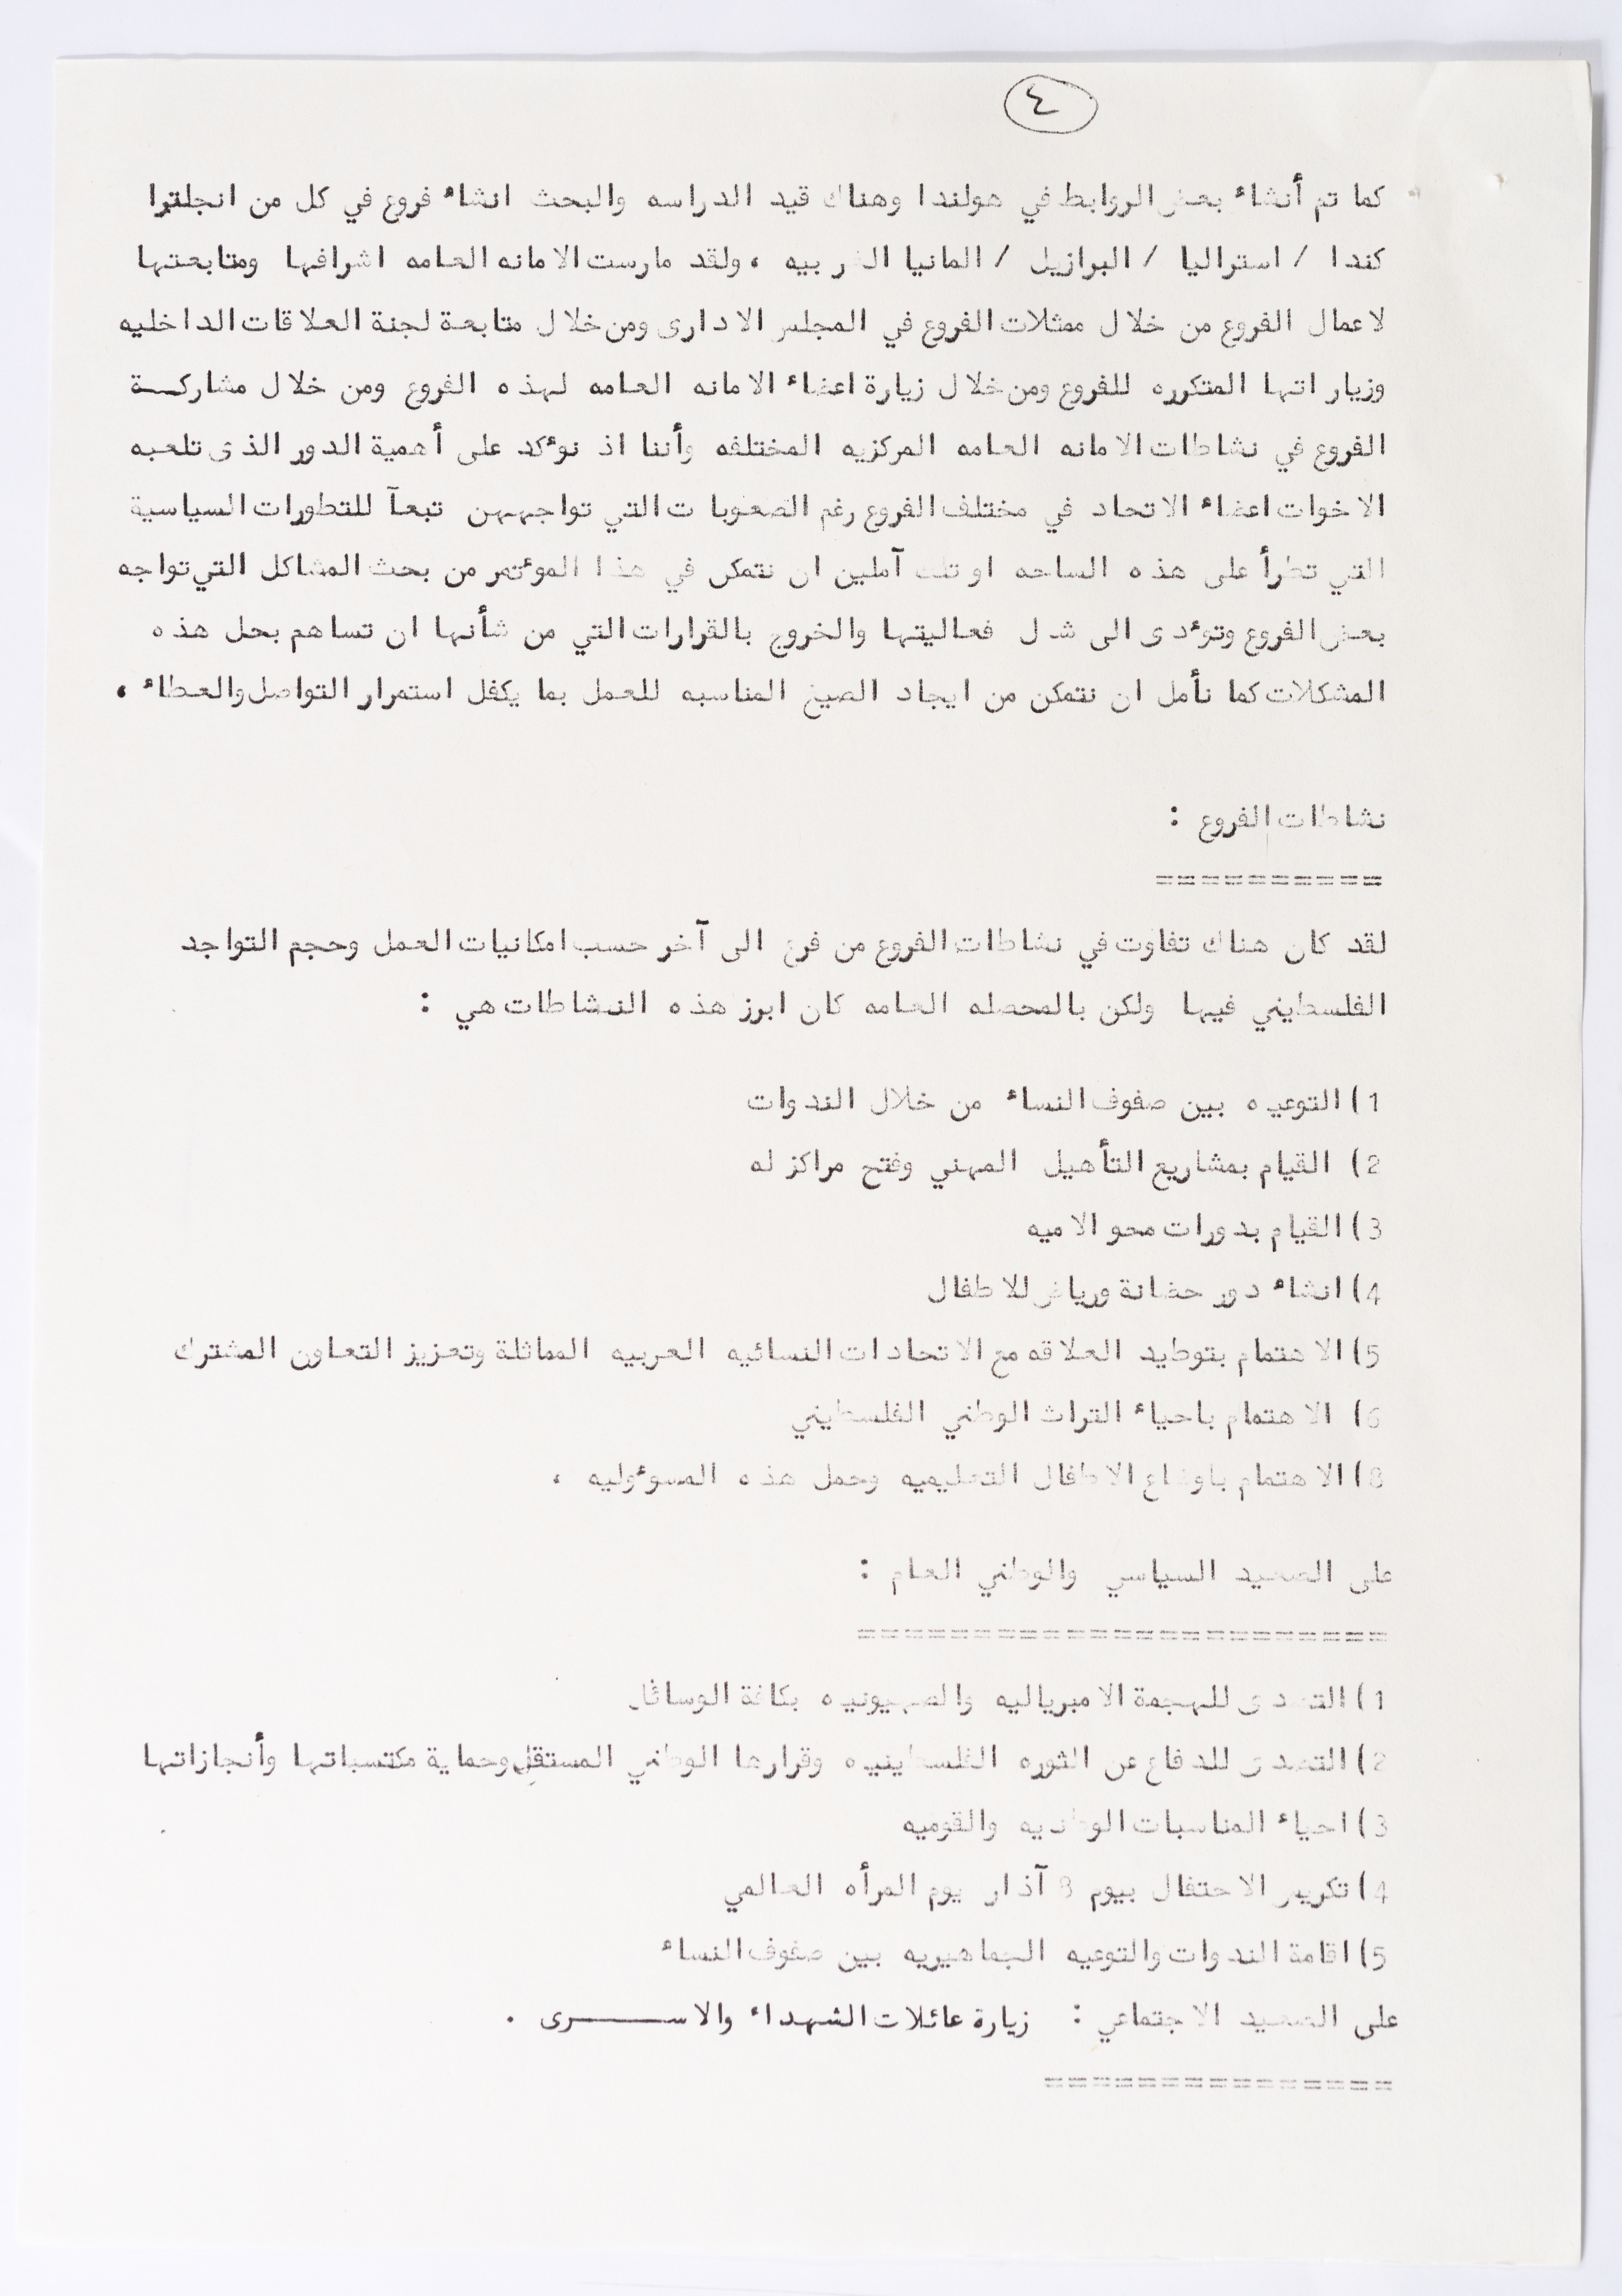 ٤
كما تم أنشاء بعض الروابط في هولندا وهناك قيد الدراسه والبحث انشاء فروع في كل من انجلترا
كندا / استراليا / البرازيل / المانيا الغربيه ، ولقد مارست الامانه العامه اشرافها ومتابعتها
لاعمال الفروع من خلال ممثلات الفروع في المجلس الادارى ومن خلال متابعة لجنة العلاقات الداخليه
وزياراتها المتكرره للفروع ومن خلال زيارة اعضاء الامانه العامه لهذه الفروع ومن خلال مشاركـــة
الفروع في نشاطات الامانه العامه المركزيه المختلفه وأننا اذ نؤكد على أهمية الدور الذى تلعبه
الاخوات اعضاء الاتحاد في مختلف الفروع رغم الصعوبات التي تواجههن تبعآ للتطورات السياسية
التي تطرأ على هذه الساحه او تلك آملين ان نتمكن في هذا المؤتمر من بحث المشاكل التي تواجه
بعض الفروع وتؤدى الى شل فعاليتها والخروج بالقرارات التي من شأنها ان تساهم بحل هذه
المشكلات كما نأمل ان نتمكن من ايجاد الصيغ المناسبه للعمل بما يكفل استمرار التواصل والعطاء .
نشاطات الفروع :
==========
لقد كان هناك تفاوت في نشاطات الفروع من فرع الى آخر حسب امكانيات العمل وحجم التواجد
الفلسطيني فيها ولكن بالمحصله العامه كان ابرز هذه النشاطات هي :
1) التوعيه بين صفوف النساء من خلال الندوات
2) القيام بمشاريع التأهيل المهني وفتح مراكز له
3) القيام بدورات محو الاميه
4) انشاء دور حضانة ورياض للاطفال
5) الاهتمام بتوطيد العلاقه مع الاتحادات النسائيه العربيه المماثلة وتعزيز التعاون المشترك
6) الاهتمام باحياء التراث الوطني الفلسطيني
8) الاهتمام باوضاع الاطفال التعليميه وحمل هذه المسؤوليه .
على الصعيد السياسي والوطني العام :
=======================
1) التصدى للهجمة الامبرياليه والصهيونيه بكافة الوسائل
2) التصدى للدفاع عن الثوره الفلسطينيه وقرارها الوطني المستقل وحماية مكتسباتها وأنجازاتها
3) احياء المناسبات الوطنيه والقوميه
4) تكريس الاحتفال بيوم 8 آذار يوم المرأه العالمي
5) اقامة الندوات والتوعيه الجماهيريه بين صفوف النساء
على الصعيد الاجتماعي : زيارة عائلات الشهداء والاســـــــرى .
===============